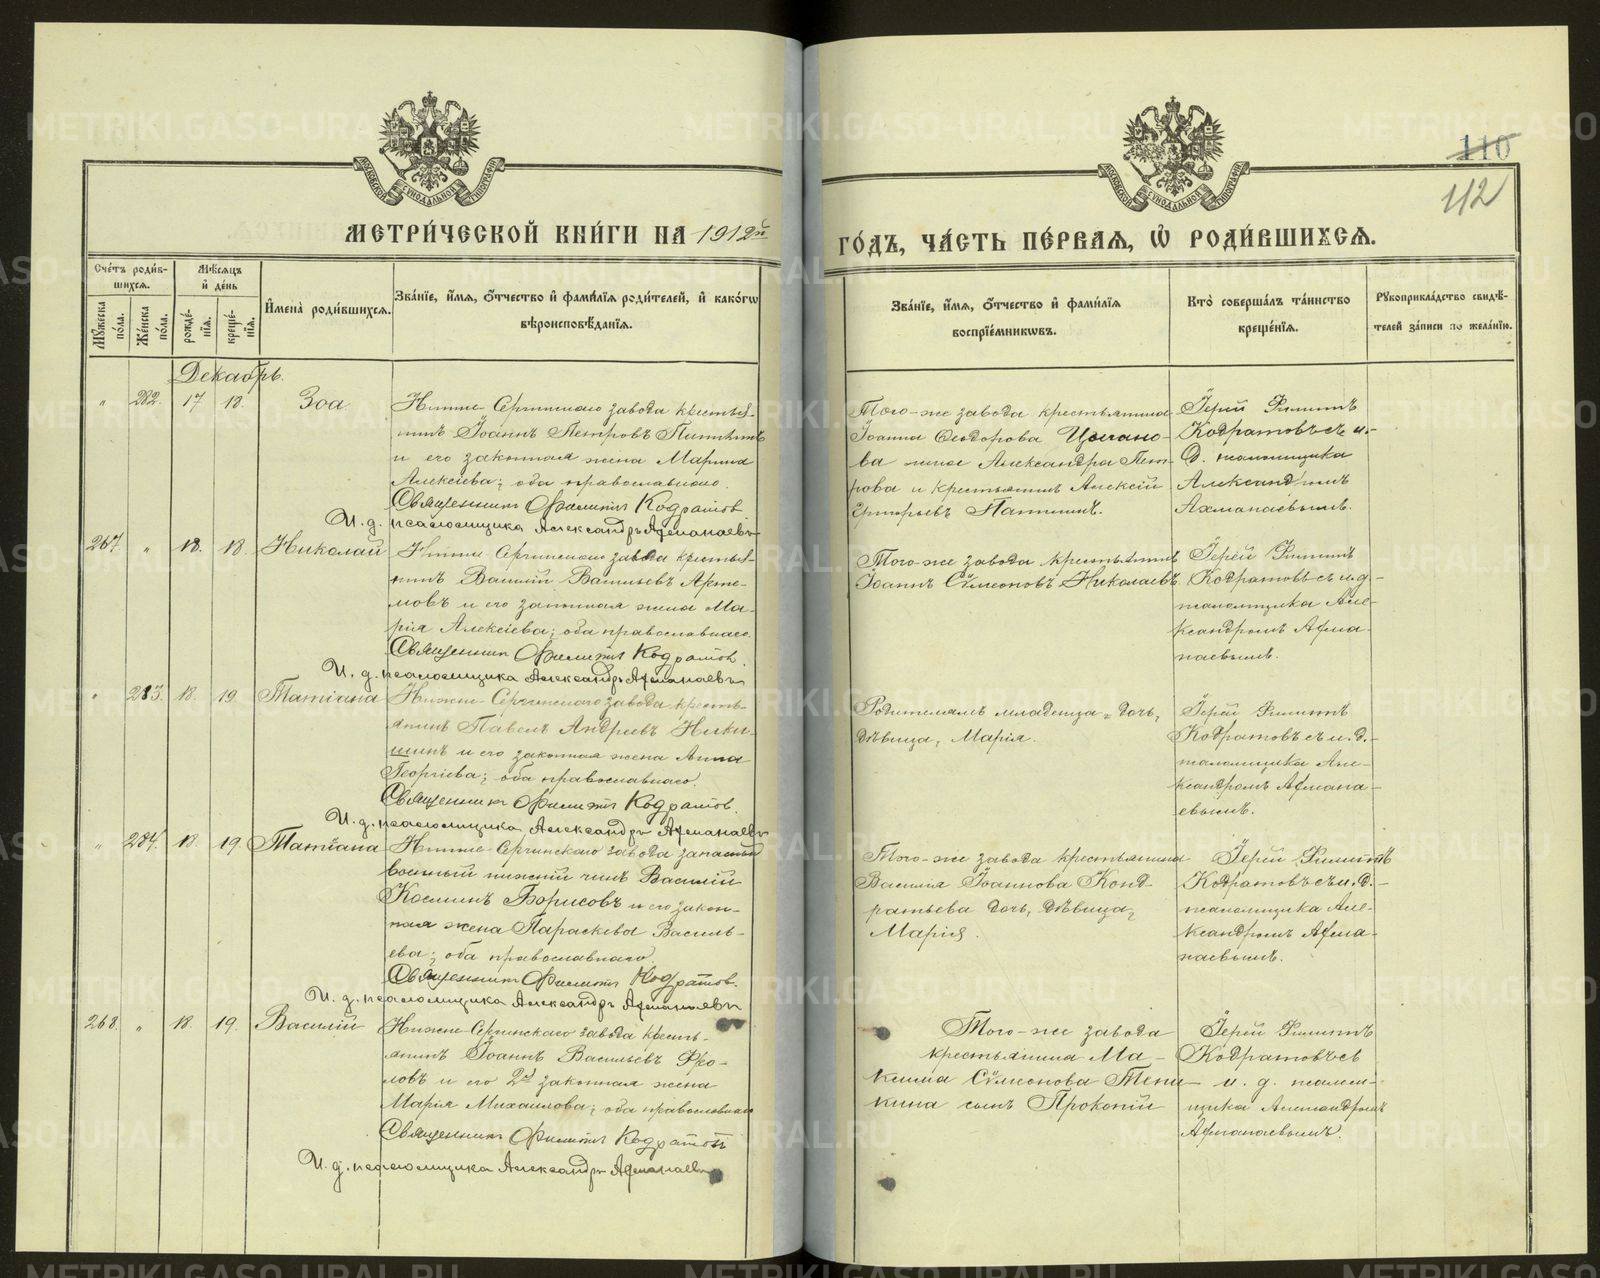 110
112
МЕТРИ́ЧЕСКОЙ КНИ́ГИ НА 1912й
ГО́ДЪ, ЧА́СТЬ ПЕ́РВАѦ, Ѡ҆ РОДИ́ВШИХСѦ.
Сче́тъ роди́в-
шихсѧ.
Мѣ́сѧцъ
и҆ де́нь
Мꙋ́жеска по́ла.
Же́нска по́ла.
рожде́-
нїѧ.
креще́-
нїѧ.
И҆мена̀ роди́вшихсѧ.
Зва́нїе, и҆́мѧ, ѻ҆́тчество и҆ фами́лїѧ роди́телей, и҆ како́гѡ
вѣроисповѣ́данїѧ.
Зва́нїе, и҆́мѧ, ѻ҆́тчество и҆ фами́лїѧ
воспрїе́мникѡвъ.
Кто̀ соверша́лъ та́инство
креще́нїѧ.
Рꙋкоприкла́дство свидѣ́-
телей за́писи по жела́нїю.
Декабрь.
" 282. 17 18. Зоа.
Нижне-Сергинскаго завода крестья-
нинъ Іоаннъ Петровъ
и его законная жена Марина
Алексіева; оба православнаго.
Священникъ Филиппъ Кодратов
И. д. псаломщика Александръ Афманаевъ
Того-же завода крестьянина
Іоанна Ѳеодорова Цыгано-
ва жена Александра Пет-
рова и крестьянинъ Алексій
Григорьевъ
Іерей Филиппъ
Кодратовъ съ и.
д. псаломщика
Александромъ
Ахманаевымъ.
267. " 18. 18. Николай
Нижне-Сергинскаго завода крестья-
нинъ Василій Васильевъ Арте-
мовъ и его законная жена Ма-
рія Алексіева; оба православнаго.
Священникъ Филиппъ Кодратов.
И. д. псаломщика Александръ Афманаевъ
Того-же завода крестьянинъ
Іоаннъ Сѵмеоновъ Николаевъ.
Іерей Филиппъ
Кодратовъ съ и. д.
псаломщика Але-
ксандромъ Афма-
наевымъ.
" 283. 18. 19. Татіана
Нижне-Сергинскаго завода кресть-
янинъ Павелъ Андреевъ Ники-
шинъ и его законная жена Анна
Георгіева; оба православнаго.
Священникъ Филиппъ Кодратов.
И. д. псаломщика Александръ Афманаевъ
Родителамъ младенца дочь,
дѣвица, Марія.
Іерей Филиппъ
Кодратовъ съ и. д.
псаломщика Але-
ксандромъ Афмана-
евымъ.
" 284. 18. 19. Татіана
Нижне-Сергинскаго завода запасный
военный нижній чинъ Василій
Косминъ Борисовъ и его закон-
ная жена Параскева Василь-
ева; оба православнаго.
Священникъ Филиппъ Кодратов.
И. д. псаломщика Александръ Афманаевъ
Того-же завода крестьянина
Василія Іоаннова Конд-
ратьева дочь, дѣвица,
Марія.
Іерей Филиппъ
Кодратовъ съ и. д.
псаломщика Але-
ксандромъ Афма-
наевымъ.
268. " 18. 19. Василій
Нижне-Сергинскаго завода кресть-
янинъ Іоаннъ Васильевъ Фро-
ловъ и его 2я законная жена
Марія Михаилова; оба православнаго
Священникъ Филиппъ Кодратовъ
И. д. псаломщика Александръ Афманаевъ
Того-же завода
крестьянина Ма-
ксима Сѵмеонова Тени-
кина сынъ Прокопій
Іерей Филиппъ
Кодратовъ съ
и. д. псалом-
щика Александромъ
Афманаевымъ.
METRIKI.GASO-URAL.RU